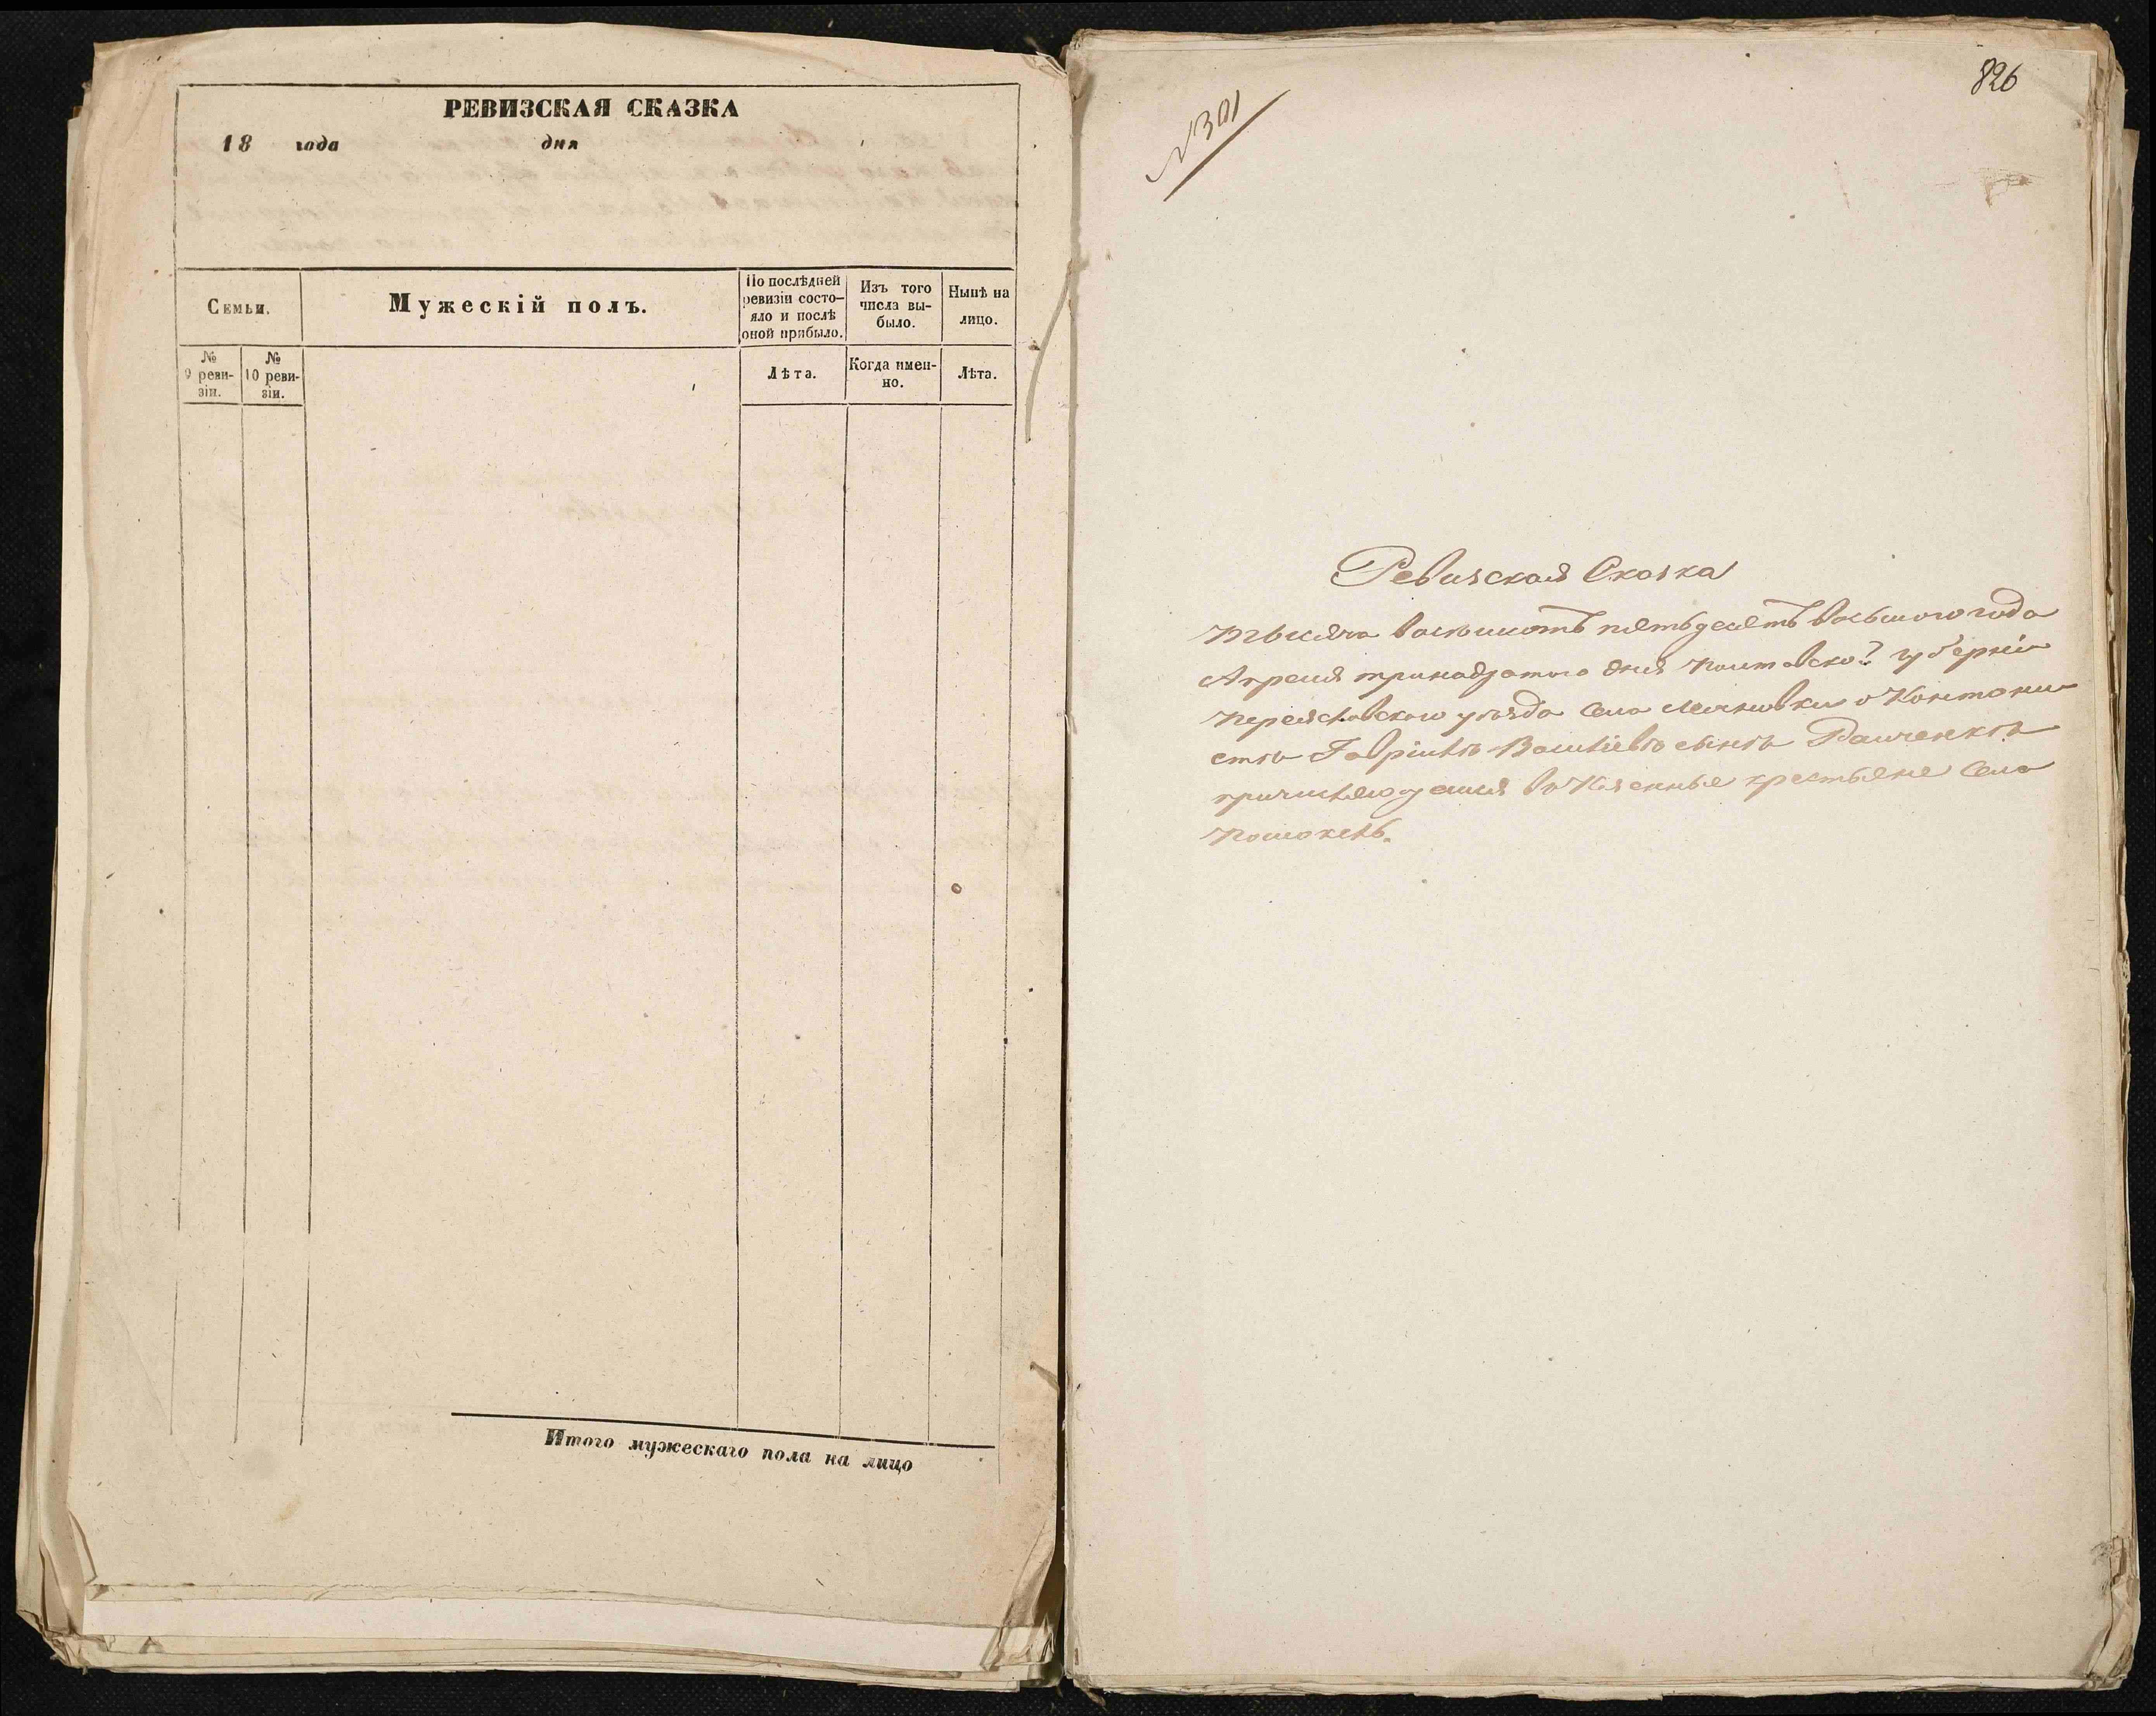 РЕВИЗСКАЯ СКАЗКА
18 года дня
Семьи.
Мужескій полъ.
По послѣдней
ревизіи состо-
яло и послѣ
оной прибыло.
Изъ того
числа вы-
было.
Нынѣ на
лицо.
№
9 реви-
зіи.
№
10 реви-
зіи.
Лѣта.
Когда имен-
но.
Лѣта.
Итого мужескаго пола на лицо
826
Ревизская Сказка
Тысяча восемьсотъ пятьдесятъ восьмого года
Апреля тринадцатого дня Полтавской губерніи
Переяславского уѣзда Села о Кантони
стѣ Гавріилѣ Василіевѣ сынѣ
въ Казенные крестьяне Села